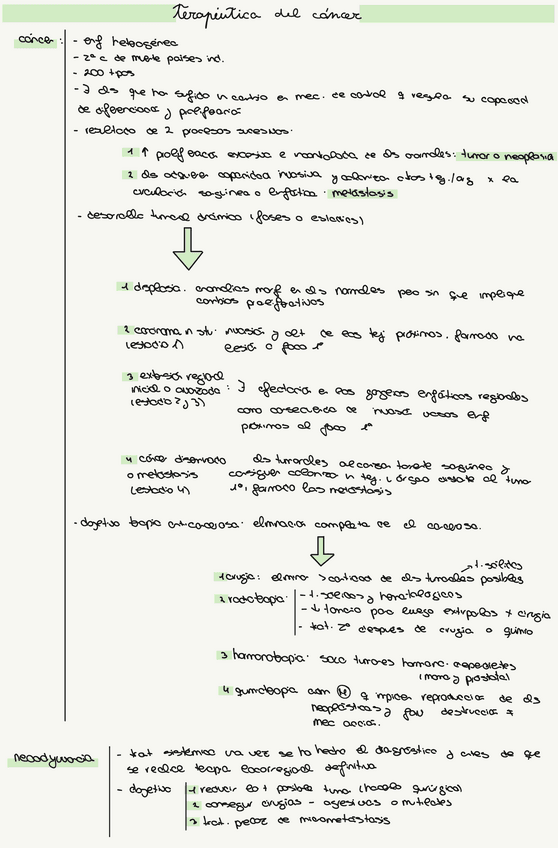 Terapéutica del cáncer
cáncer: - enf heterogénea
- 2ª c de muerte países ind.
- 200 tipos
- cls que han sufrido un cambio en mec. de control q regula su capacidad
de diferenciación y proliferación
- resultado de 2 procesos sucesivos:
1 ↑ proliferación excesiva e incontrolada de cls anormales: tumor o neoplasia
2 cls adquieren capacidad invasiva y colonizan otros tej./org x la
circulación sanguínea o linfática: metástasis
- desarrollo tumoral dinámico (fases o estadios)
1 displasia: anomalías morf en cls normales pero sin que implique
cambios proliferativos
2 carcinoma in situ: invasión y alt de los tej próximos, formando una
(estadio 1) lesión o foco 1º
3 extensión regional
inicial o avanzada: afectación en los ganglios linfáticos regionales
(estadio 2 y 3) como consecuencia de invasión vasos linf
próximos al foco 1º
4 cáncer diseminado cls tumorales alcanzan torrente sanguíneo y
o metástasis consiguen colonizar un tej. u órgano distante al tumor
(estadio 4) 1º, formando las metástasis
- objetivo terapia anticancerosa: eliminación completa de cl cancerosa.
t. sólidos
1 cirugía: elimina > cantidad de cls tumorales posibles
2 radioterapia: - t. sólidos y hematológicos
- ↓ tamaño para luego extirparlos x cirugía
- trat. 2º después de cirugía o quimio
3 hormonoterapia: solo tumores hormono dependientes
(mama y próstata)
4 quimioterapia: con M q impiden reproducción de cls
neoplásicas y fav destrucción ≠
mec acción.
neoadyuvancia - trat sistémico una vez se ha hecho el diagnóstico y antes de que
se realice terapia locorregional definitiva
- objetivo 1 reducir lo + posible tumor (rescate quirúrgico)
2 conseguir cirugías - agresivas o mutilantes
3 trat. precoz de micrometástasis